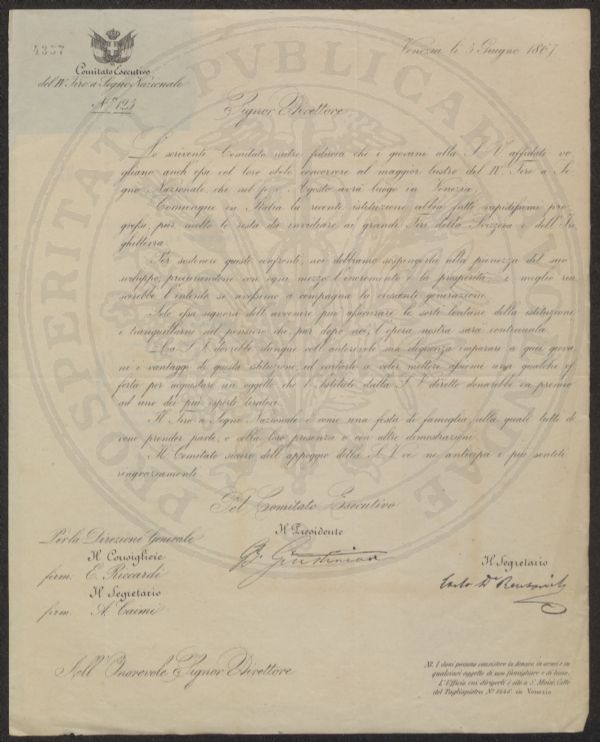 4357
Venezia li 5 Giugno 1867
Comitato Esecutivo
del IV. Tiro a Segno Nazionale
N.° 124
Signor Direttore
Lo scrivente Comitato nutre fiducia che i giovani alla S. V. affidati vo
gliano anch'essi col loro obolo concorrere al maggior lustro del IV. Tiro a Se
gno Nazionale che nel p. v. Agosto avrà luogo in Venezia.
Comunque in Italia la recente istituzione abbia fatto rapidissimi pro
gressi, pur molto le resta da invidiare ai grandi Tiri della Svizzera e dell'In
ghilterra.
Per sostenere questi confronti, noi dobbiamo sospingerla alla pienezza del suo
sviluppo, procurandone con ogni mezzo l'incremento e la prosperità e meglio riu
scirebbe l'intento se avessimo a compagna la crescente generazione.
Solo essa signora dell'avvenire può assicurare le sorti lontane della istituzione
e tranquillarci nel pensiero che, pur dopo noi, l'opera nostra sarà continuata.
La S. V. dovrebbe dunque coll'autorevole sua imparare a quei giova
ni i vantaggi di questa istituzione, ed esortarli a voler mettere assieme una qualche of
ferta per acquistare un oggetto che l'Istituto dalla S. V. diretto donarebbe in premio
ad uno dei più esperti tiratori.
Il Tiro a Segno Nazionale è come una festa di famiglia, alla quale tutti de
vono prender parte, o colla loro presenza o con altre dimostrazioni.
Il Comitato sicuro dell'appoggio della S. V. ve ne anticipa i più sentiti
ringraziamenti.
Pel Comitato Esecutivo
Per la Direzione Generale
Il Presidente
Il Consigliere
G. B. Giustinian
Il Segretario
firm. E. Riccardi
Carlo Dr
Il Segretario
firm. A. Caimi
Sell' Onorevole Signor Direttore
NB. I doni possono consistere in denaro, in armi e in
qualsiasi oggetto di uso famigliare o di lusso.
L'Ufficio cui dirigerli è sito a S. Moisè, Calle
del Tagliapietra N.° in Venezia
PROSPERITATI PUBLICAE